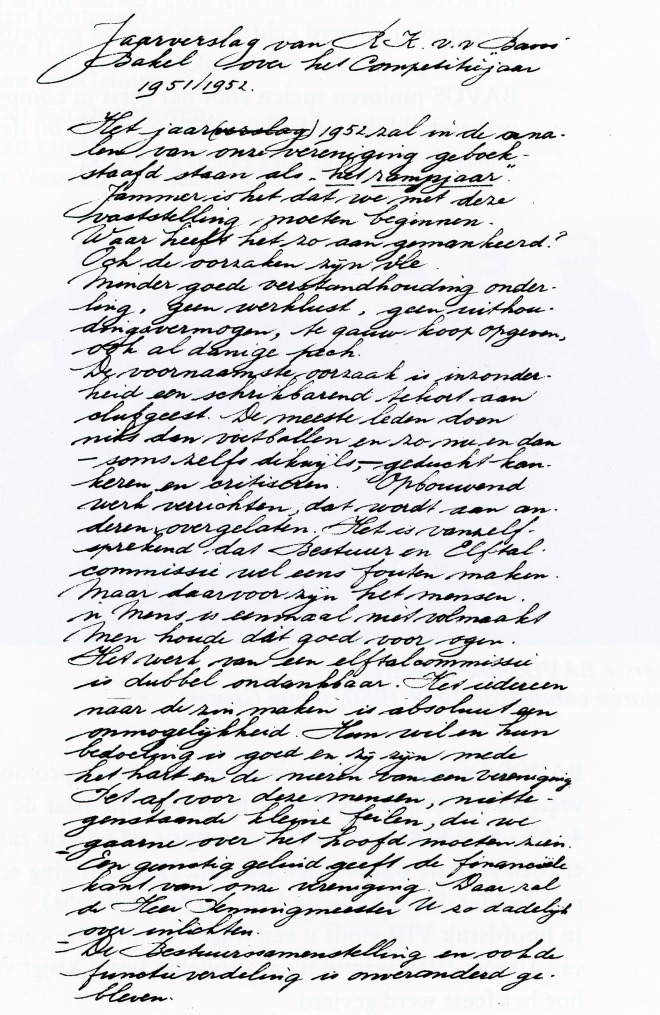 Jaarverslag van R.K. v.v Bavos
Bakel over het Competitiejaar
1951/1952.
Het jaar(verslag) 1952 zal in de anna-
len van onze vereniging geboek-
staafd staan als "het rampjaar".
Jammer is het dat we met deze
vaststelling moeten beginnen.
Waar heeft het zo aan gemankeerd?
Och de oorzaken zijn vele
Minder goede verstandhouding onder-
ling, geen werklust, geen uithou-
dingsvermogen, te gauw hoop opgeven,
ook al danige pech.
De voornaamste oorzaak is inzonder-
heid een schrikbarend tekort aan
clubgeest. De meeste leden doen
niks dan voetballen en zo nu en dan
- soms zelfs dikwijls, - geducht kan-
keren en critiseren. Opbouwend
werk verrichten, dat wordt aan an-
deren overgelaten. Het is vanzelf-
sprekend dat Bestuur en Elftal-
commissie wel eens fouten maken.
Maar daarvoor zijn het mensen.
'n Mens is eenmaal niet volmaakt
Men houde dàt goed voor ogen.
Het werk van een elftalcommissie
is dubbel ondankbaar. Het iedereen
naar de zin maken is absoluut een
onmogelijkheid. Hun wil en hun
bedoeling is goed en zij zijn mede
het hart en de nieren van een vereniging
Pet af voor deze mensen, niette
genstaande kleine feilen, die we
gaarne over het hoofd moeten zien.
= Een gunstig geluid geeft de financiële
kant van onze vereniging. Daar zal
de Heer Penningmeester U zo dadelijk
over inlichten.
= De Bestuurssamenstelling en ook de
functieverdeling is onveranderd ge-
bleven.